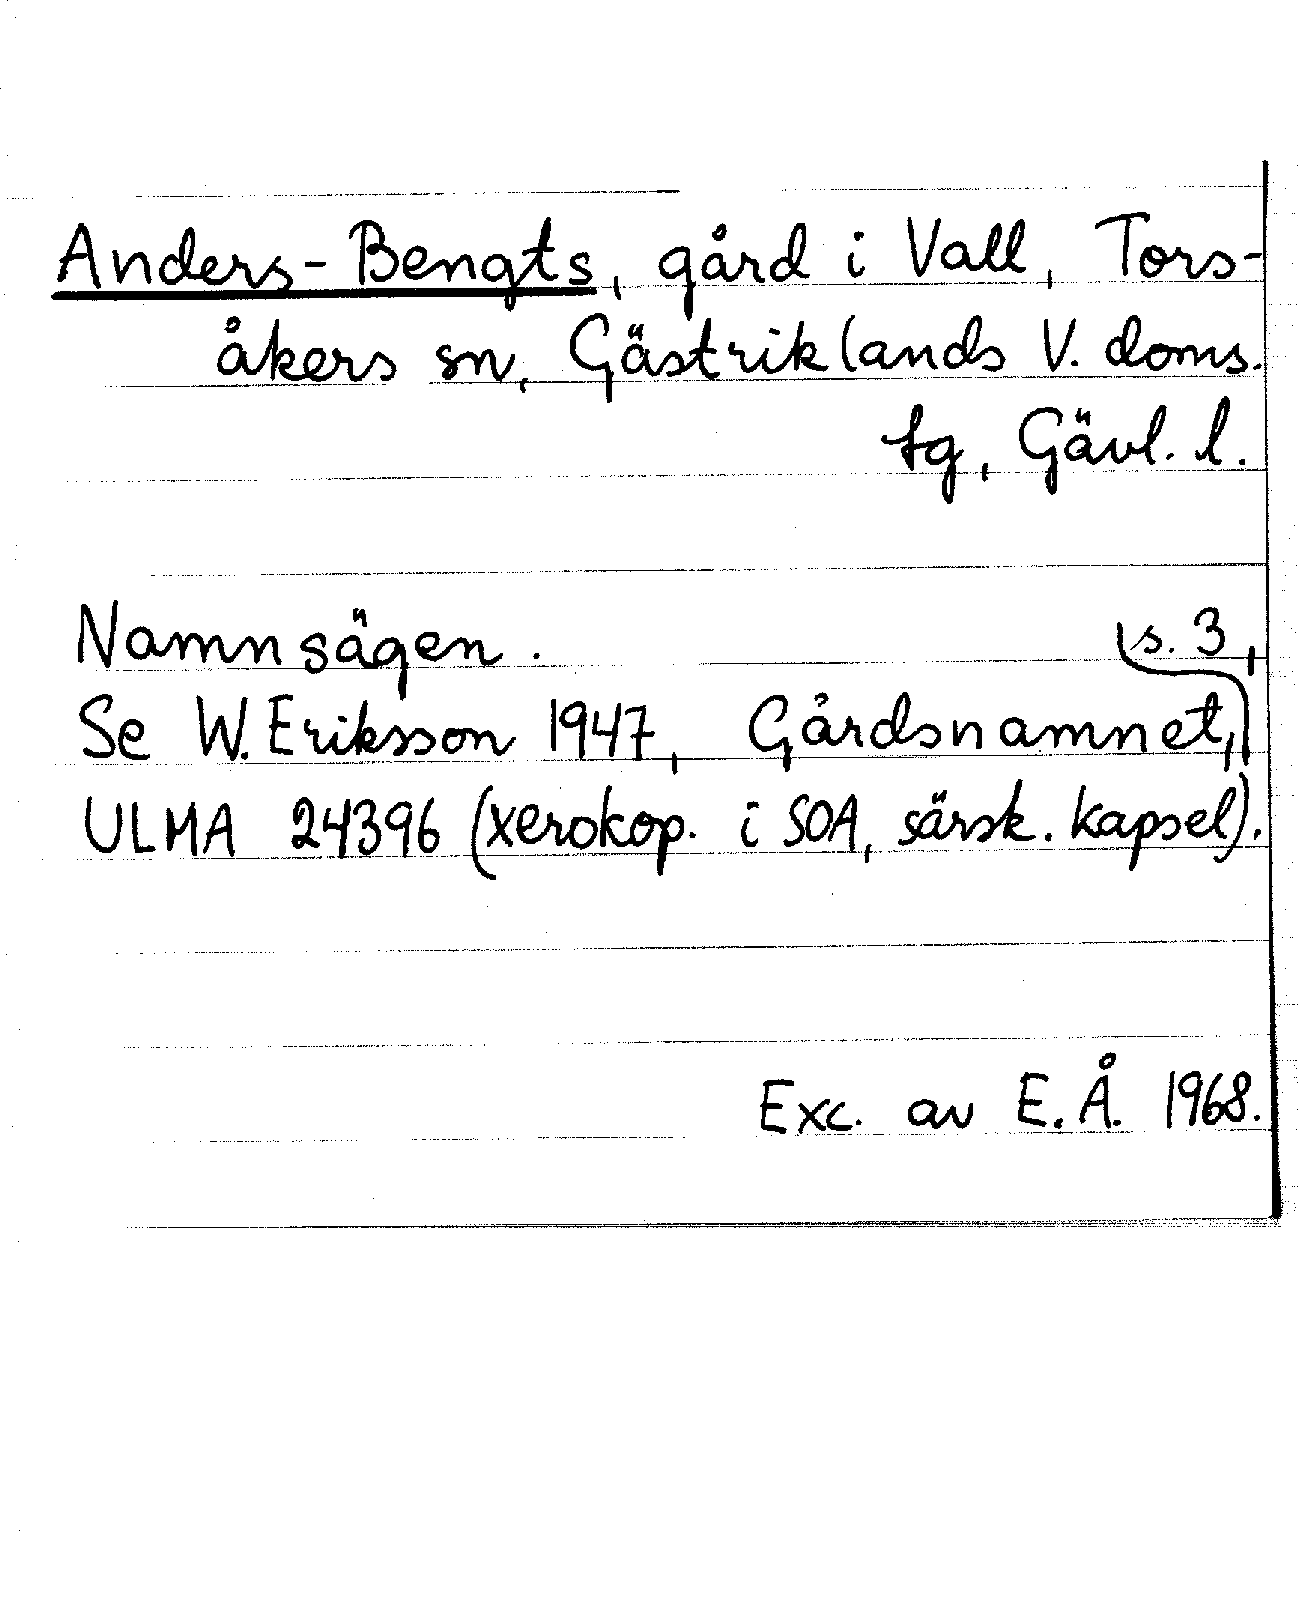 Anders-Bengts, gård i Vall, Tors-
åkers sn, Gästriklands V. doms.
tg, Gävl. l.
Namnsägen.
s. 3,
Se W. Eriksson 1947, Gårdsnamnet,
ULMA 24396 (xerokop. i SOA, särsk. kapsel).
Exc. av E.Å. 1968.